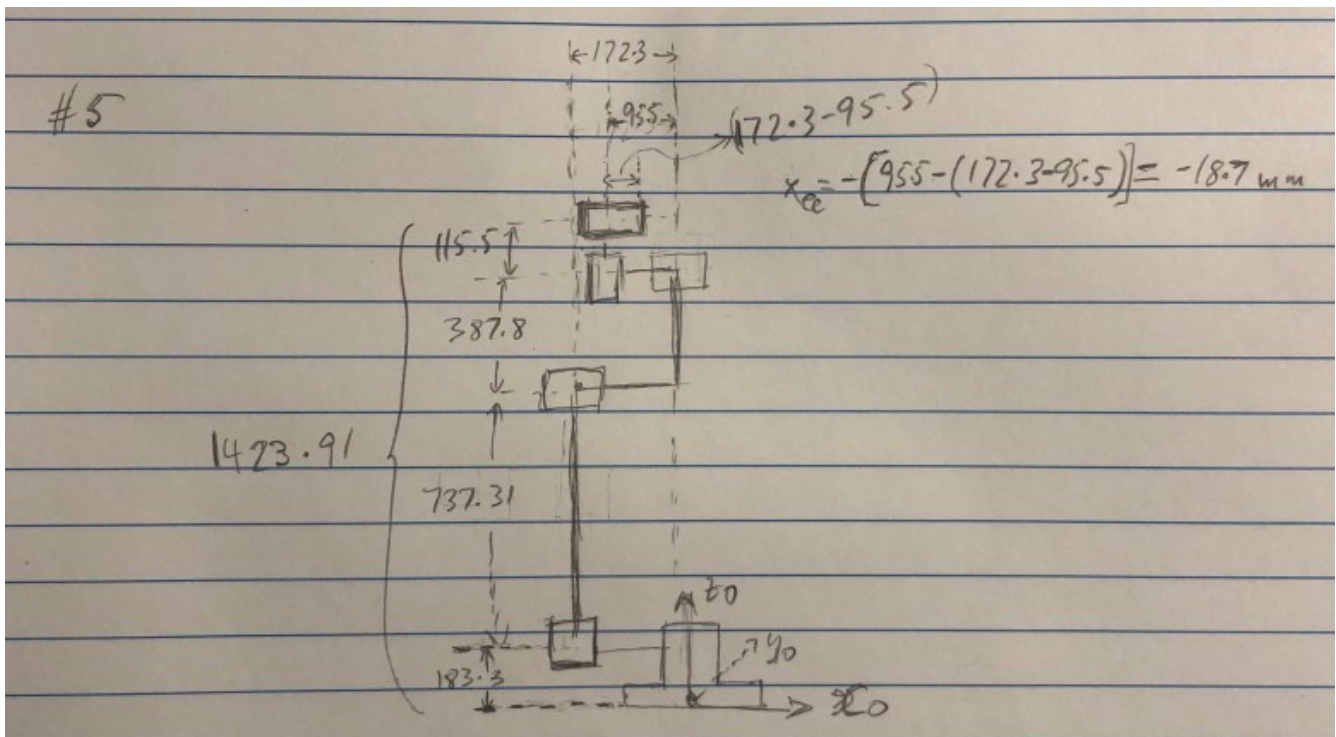 172.3
#5
95.5
(172.3-95.5)
xee=-[95.5-(172.3-95.5)]= -18.7 mm
115.5
387.8
1423.91
737.31
z0
y0
183.3
x0